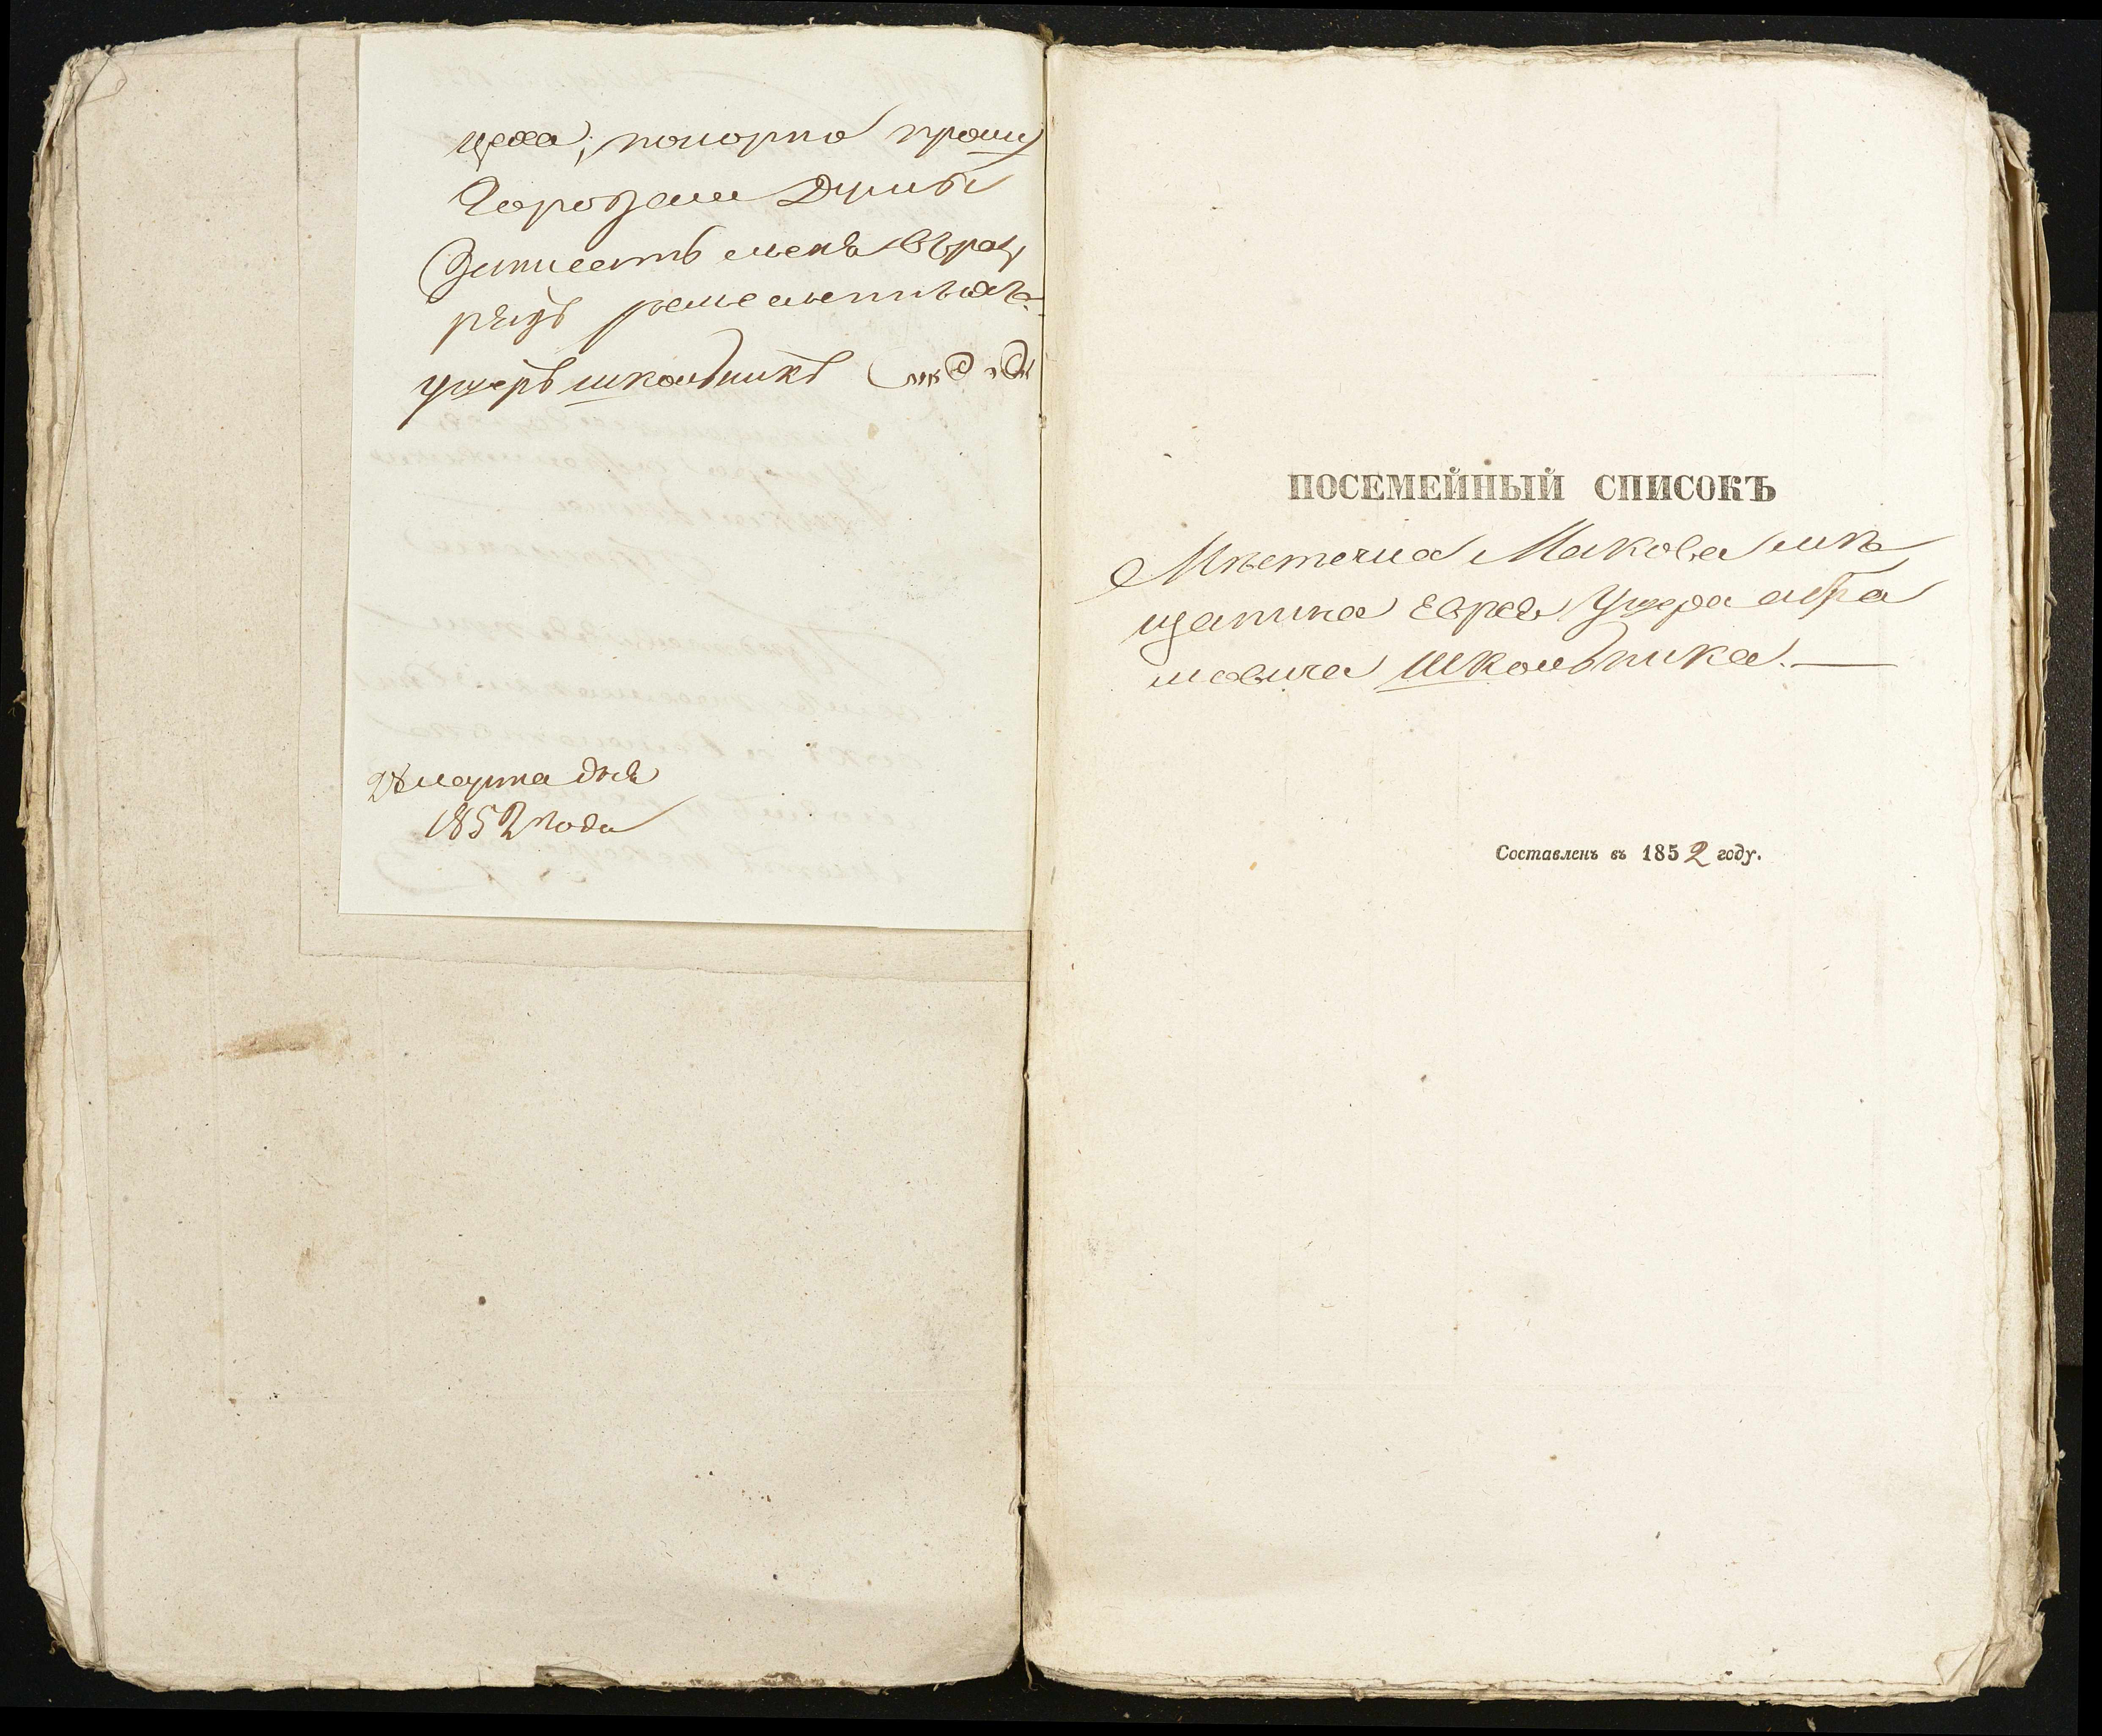 цеха; покорно прошу
Городзкои Думы
Записать меня въ раз
рядъ ремесленныхъ
Ушеръ школьникъ
28 марта дня
1852 года
ПОСЕМЕЙНЫЙ СПИСОКЪ
Мѣстечка Макова мѣ
щанина Еврея Ушера абра
мовича Школьника.—
Составленъ въ 1852 году.